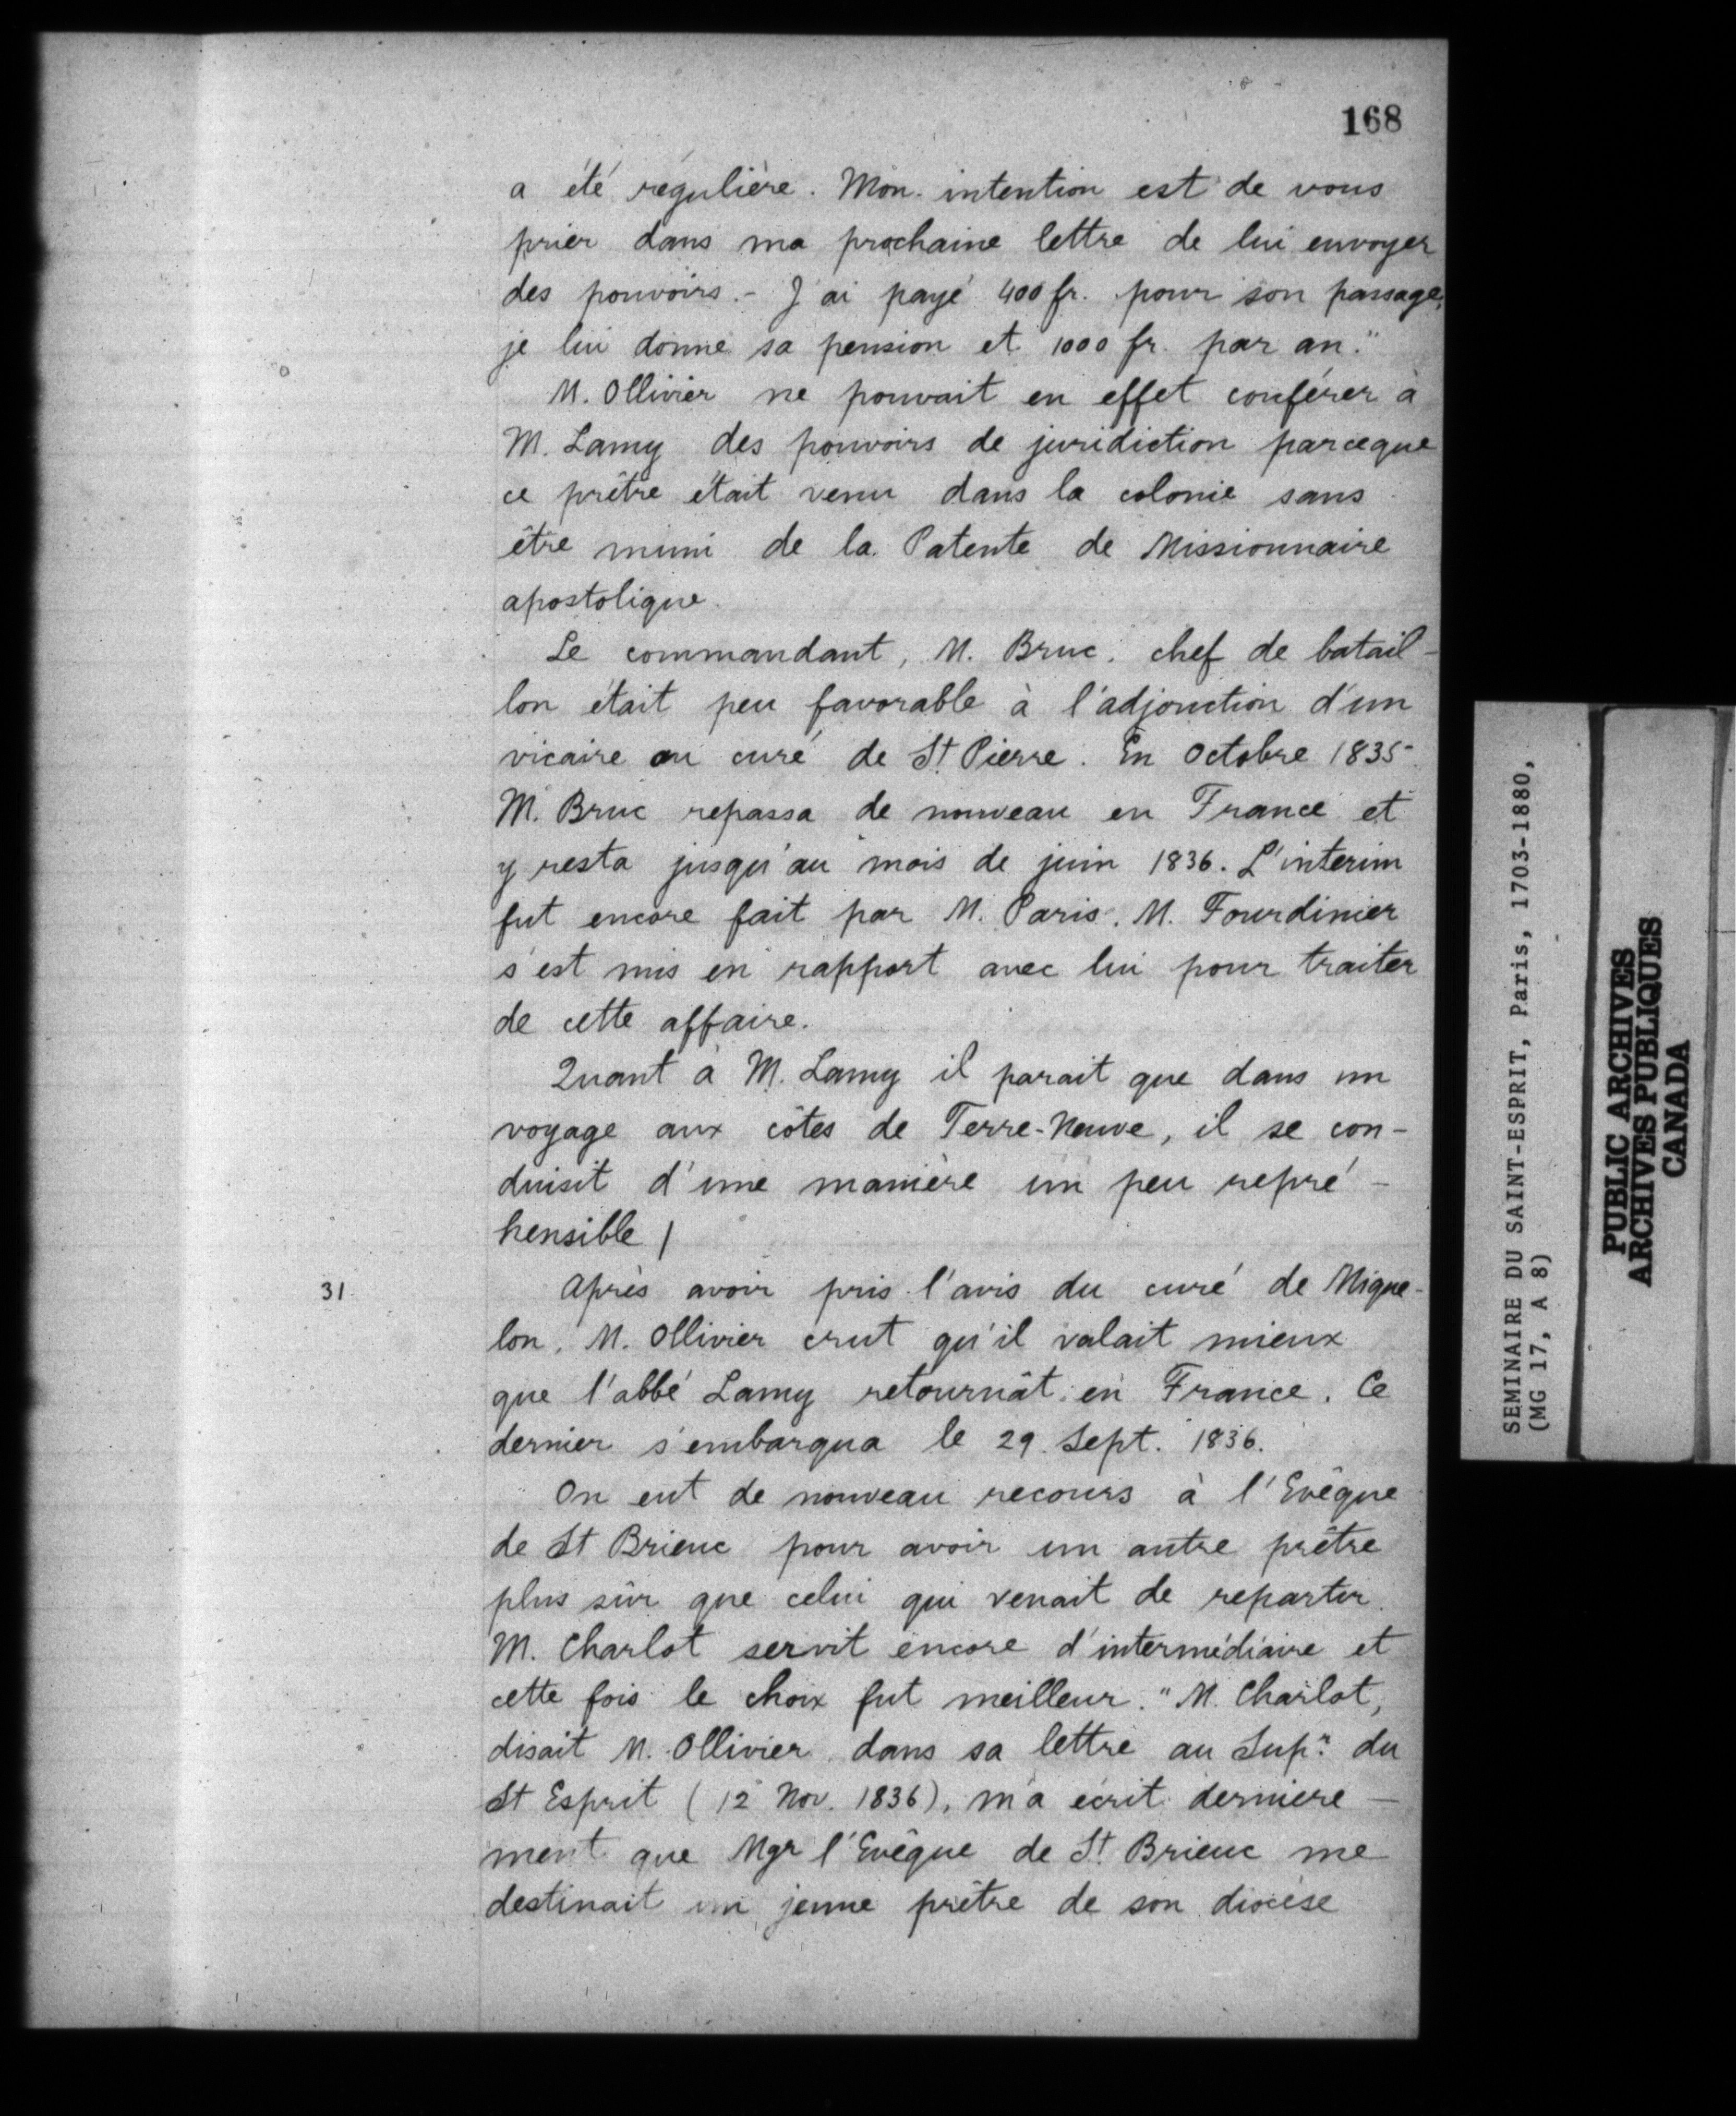 168
a été régulière. Mon intention est de vous
prier dans ma prochaine lettre de lui envoyer
des pouvoirs. - J'ai payé 400 fr. pour son passage,
je lui donne sa pension et 1000 fr. par an."
M. Ollivier ne pouvait en effet conférer à
M. Lamy des pouvoirs de juridiction parceque
ce prêtre était venu dans la colonie sans
être muni de la Patente de Missionnaire
apostolique.
Le commandant, M. Bruc, chef de batail-
lon était peu favorable à l'adjonction d'un
vicaire au curé de St Pierre. En Octobre 1835
M. Bruc repassa de nouveau en France et
y resta jusqu'au mois de juin 1836. L'interim
fut encore fait par M. Paris. M. Fourdinier
s'est mis en rapport avec lui pour traiter
de cette affaire.
Quant à M. Lamy il parait que dans un
voyage aux côtes de Terre-Neuve, il se con-
duisit d'une manière un peu repré-
hensible /
31 Après avoir pris l'avis du curé de Mique-
lon, M. Ollivier crut qu'il valait mieux
que l'abbé Lamy retournât en France. Ce
dernier s'embarqua le 29 Sept. 1836.
On eut de nouveau recours à l'Evêque
de St Brieuc pour avoir un autre prêtre
plus sûr que celui qui venait de repartir.
M. Charlot servit encore d'intermédiaire et
cette fois le choix fut meilleur. "M. Charlot,
disait M. Ollivier dans sa lettre au Supr du
St Esprit (12 Nov. 1836), m'a écrit derniere-
ment que Mgr l'Evêque de St Brieuc me
destinait un jeune prêtre de son diocèse
SEMINAIRE DU SAINT-ESPRIT, Paris, 1703-1880,
(MG 17, A 8)
PUBLIC ARCHIVES
ARCHIVES PUBLIQUES
CANADA